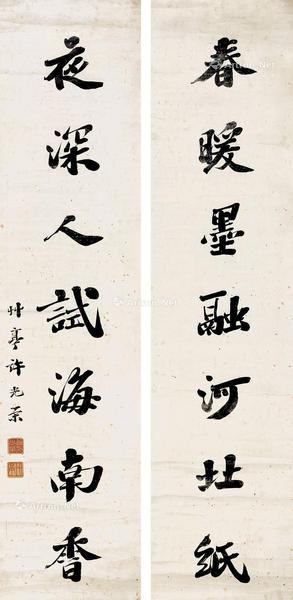 春暖墨融河北紙
夜深人試海南香
竹亭許光